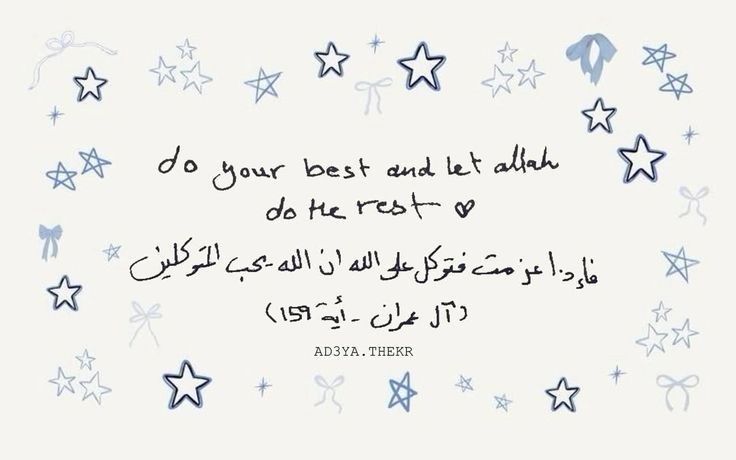 do your best and let allah
do the rest ♥
فإذا عزمت فتوكل على الله ان الله يحب المتوكلين
(آل عمران - أية 159)
AD3YA.THEKR